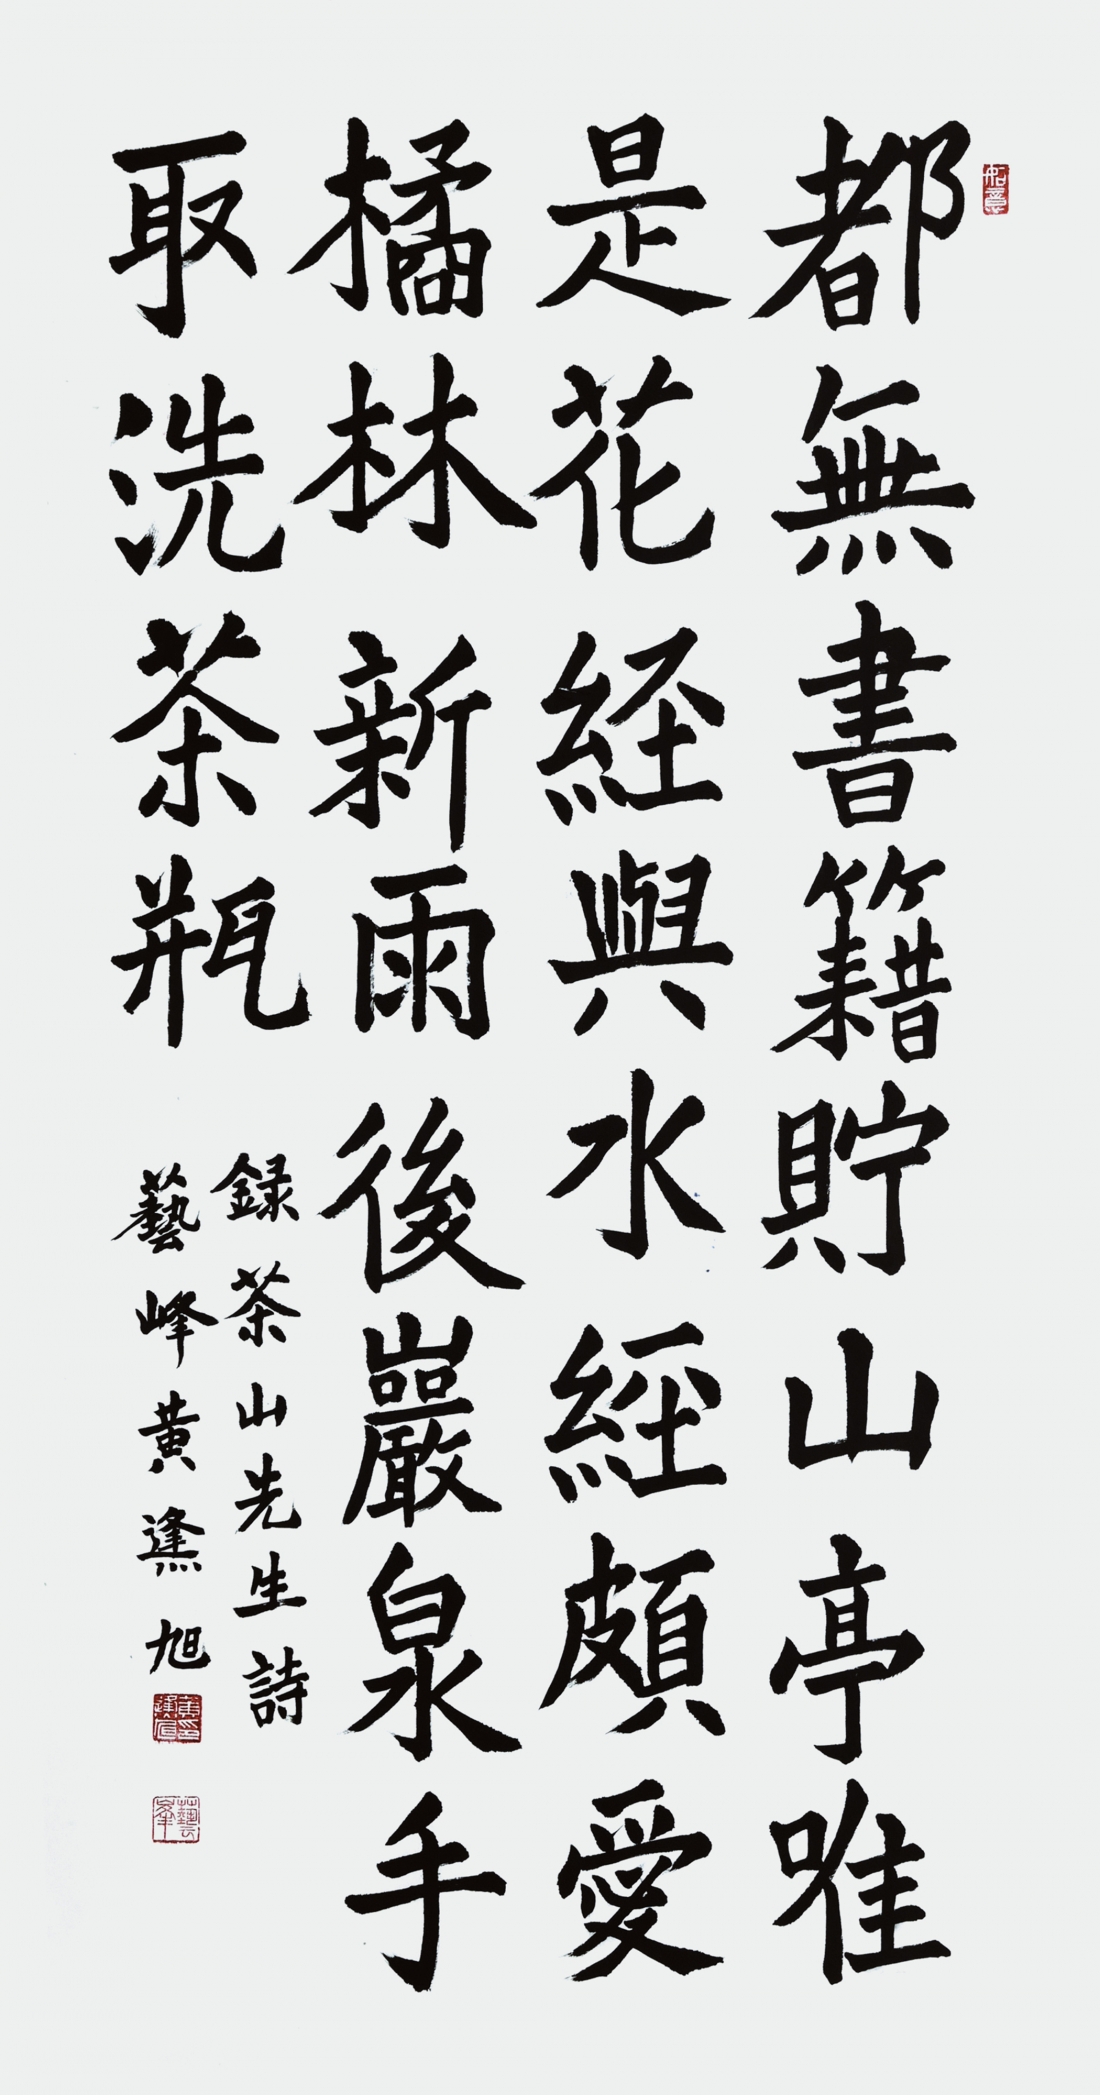 都無書籍貯山亭唯
是花經與水經頗愛
橘林新雨後巖泉手
取洗茶瓶
錄茶山先生詩
藝峰黃逢旭
如意
藝峯